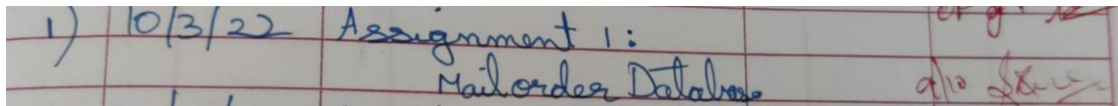 1) 10/3/22 Assignment 1:
Mail order Database 9/10